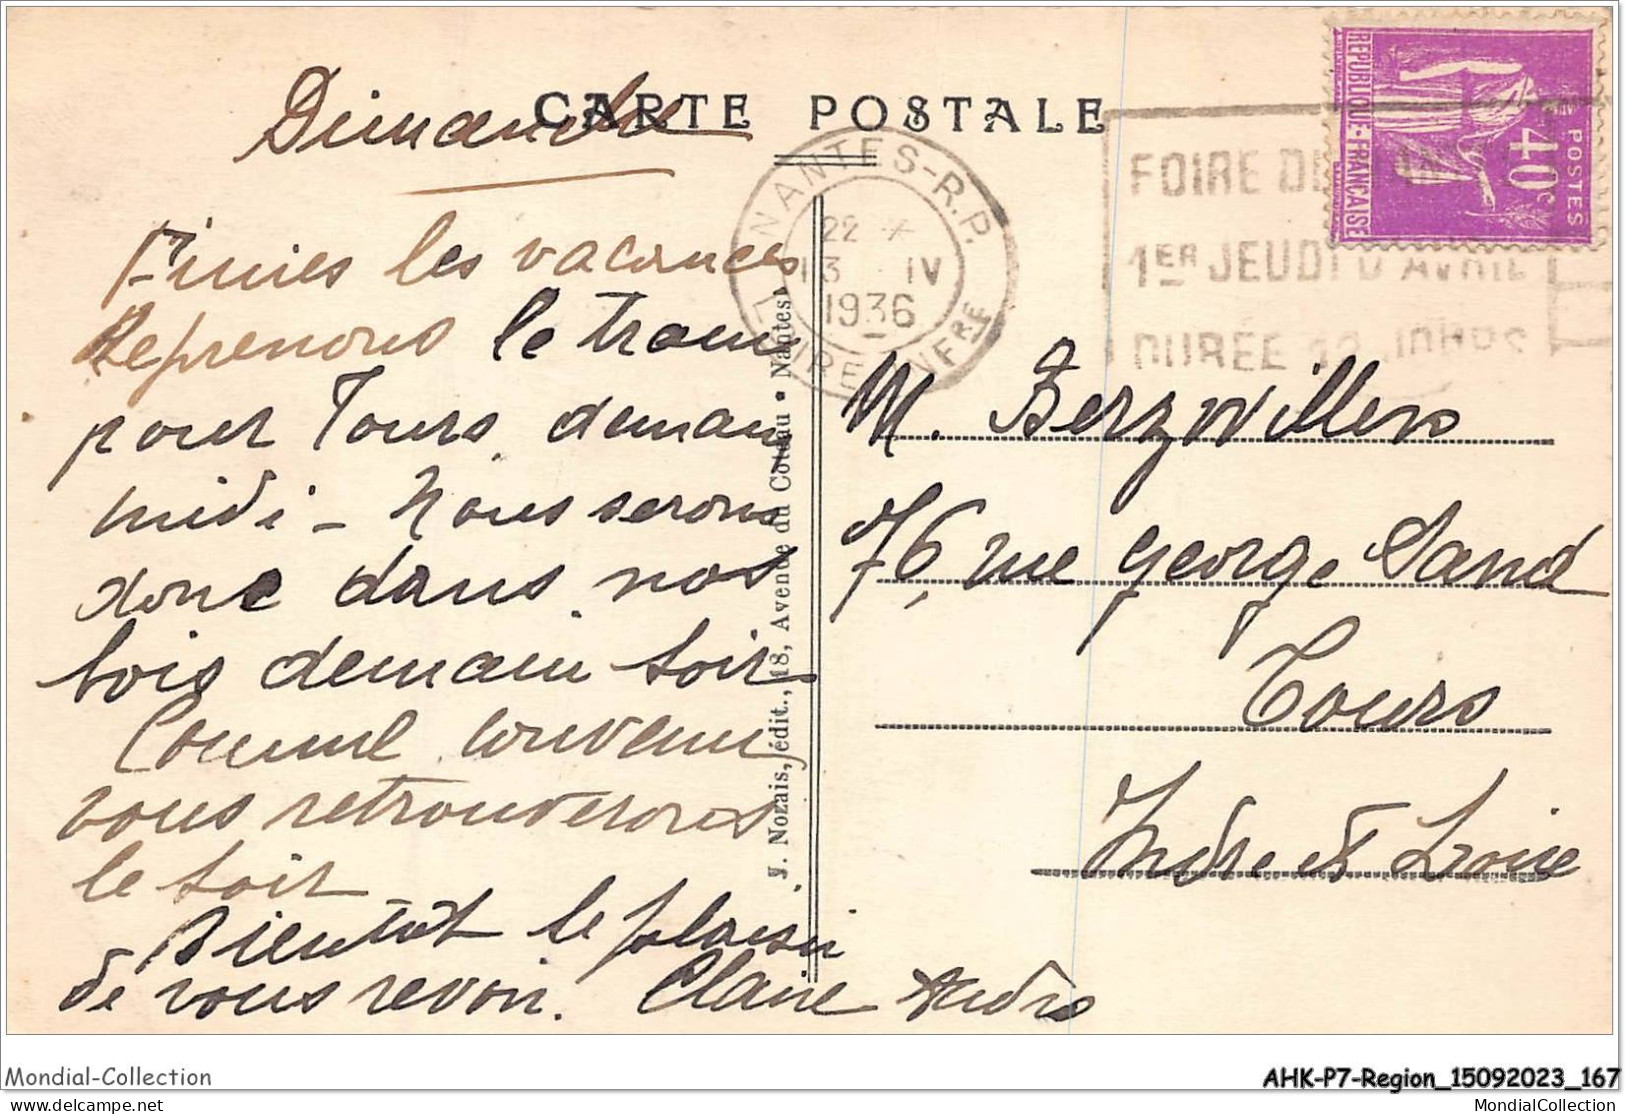 CARTE POSTALE
Dimanche
Finies les vacances
Reprenons le train
pour Tours demain
midi - Nous serons
donc dans nos
bois demain soir
Comme convenu
vous retrouverons
le soir
Bientôt le plaisir
de vous revoir. Claire Andrs
Y. Nozais, édit., 18, Avenue du Coteau • Nantes
NANTES-R.P.
22 X
13 IV
1936
LOIRE INFRE
FOIRE DE NANTES
1ER JEUDI D'AVRIL
DURÉE 12 JOURS
REPUBLIQUE·FRANÇAISE
40c
POSTES
M. Berzwillers
76, rue George Sand
Tours
Indre et Loire
Mondial-Collection
AHK-P7-Region_15092023_167
delcampe.net
MondialCollection